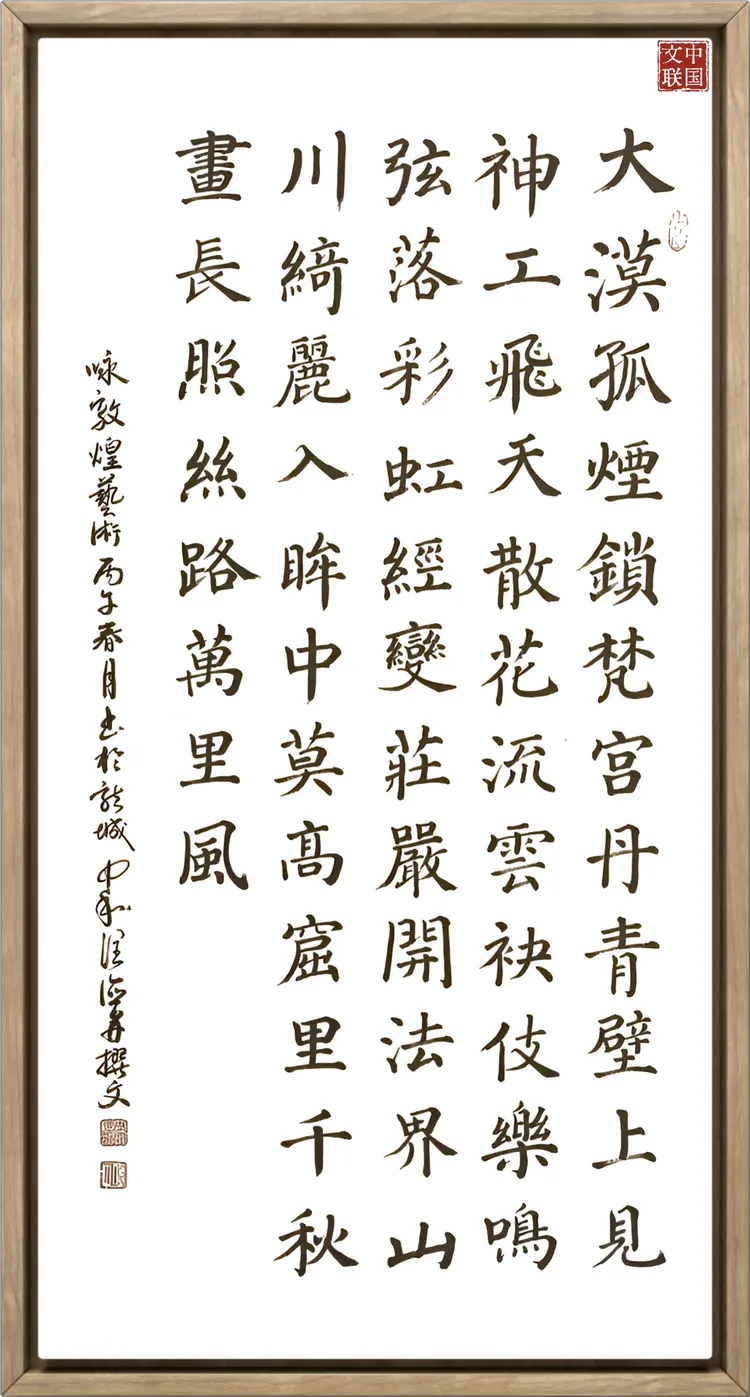 中国文联
大漠孤煙鎖梵宫丹青壁上見
神工飛天散花流雲袂伎樂鳴
弦落彩虹經變莊嚴開法界山
川綺麗入眸中莫高窟里千秋
畫長照絲路萬里風
咏敦煌藝術丙午春月书於龍城中和撰文